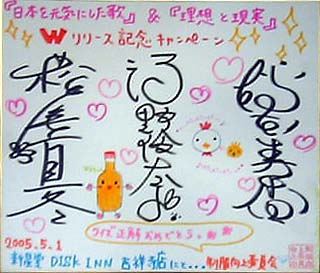 『日本を元気にした歌』&『理想と現実』
Wリリース記念キャンペーン
松尾真冬
クイズ正解おめでとう
2005.5.1
新星堂 DISK INN 吉祥寺店にて… 制服向上委員会